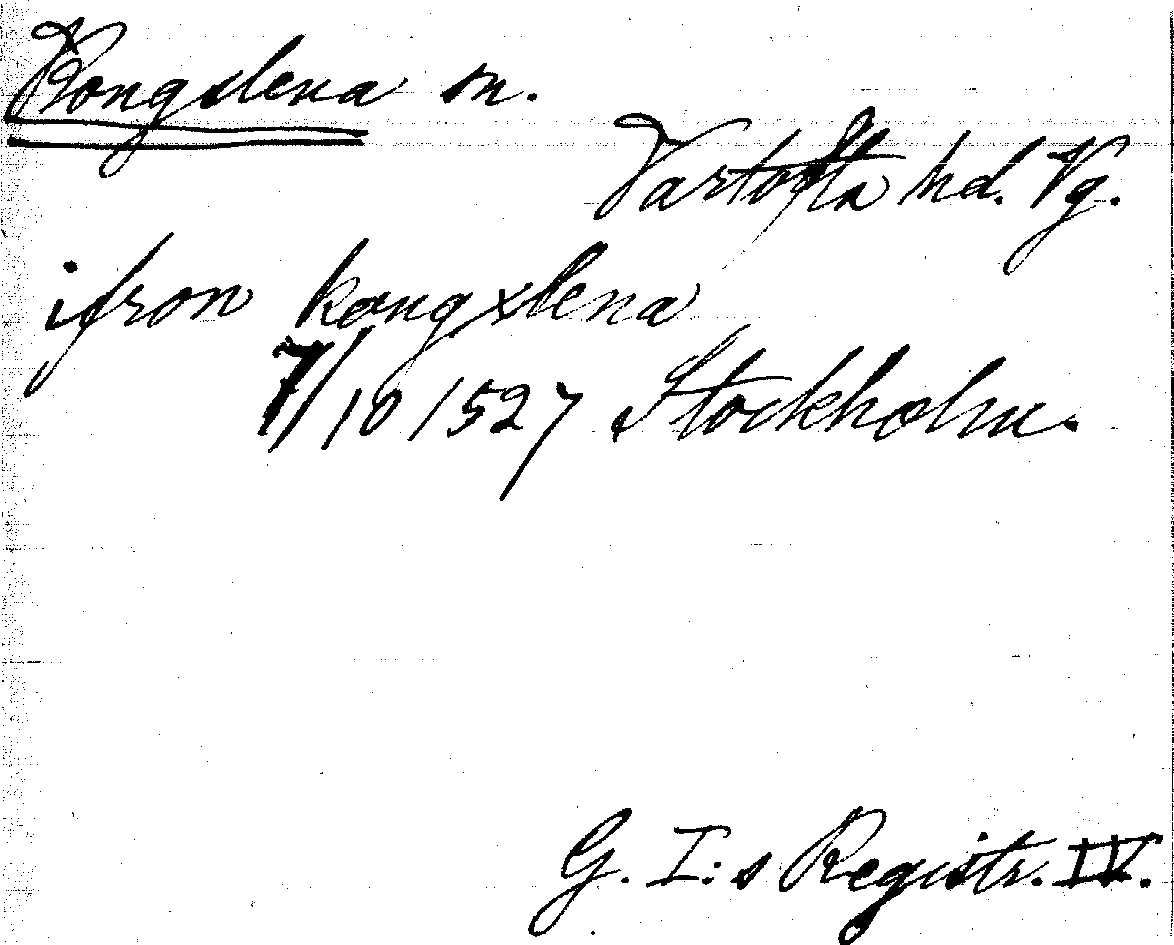 Kongslena sn.
Vartofta hd. Vg.
ifron kongxlena
7/10 1527 Stockholm.
G. I:s Registr. IV.